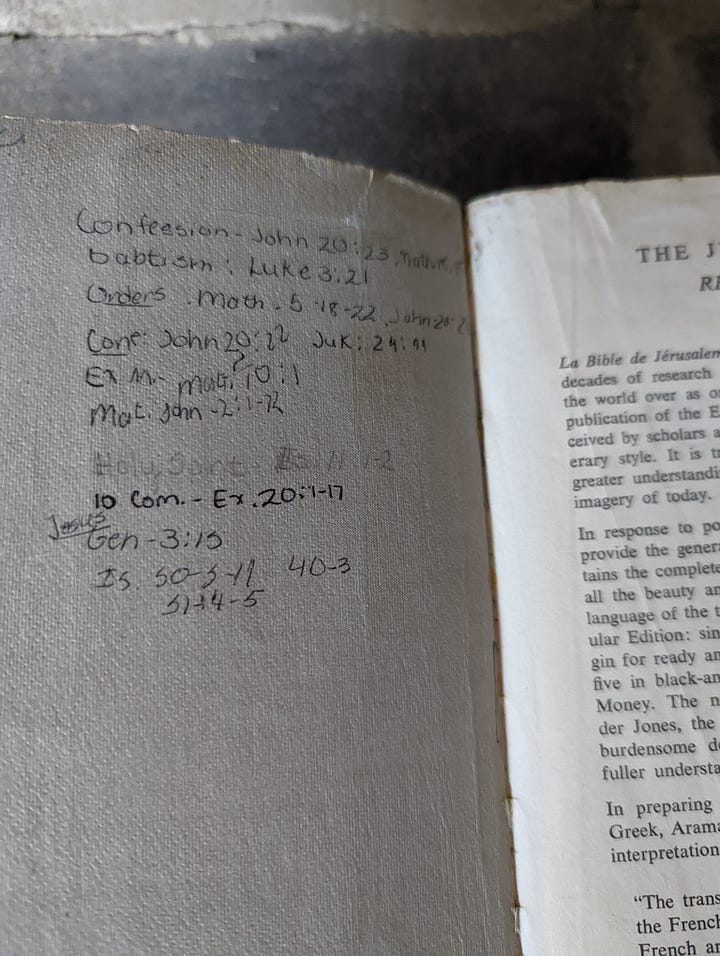 Confession - John 20:23, Math.
babtism: Luke 3:21
Orders. Math. 5-18-22, John 20:2
Conf: John 20:22 Juk: 24:49
? 
Ex M.- mat. 10:1
Mat. John - 2:1-12
Holy Spirit Is. 11 1-2
10 Com. - Ex. 20:1-17
Jesus
Gen - 3:15
Is. 50-5-11 40-3
51+4-5
THE J
RE
La Bible de Jérusalem
decades of research
the world over as o
publication of the E
ceived by scholars a
erary style. It is tr
greater understandi
imagery of today.
In response to po
provide the genera
tains the complete
all the beauty an
language of the t
ular Edition: sin
gin for ready an
five in black-an
Money. The n
der Jones, the
burdensome de
fuller understa
In preparing
Greek, Arama
interpretation
“The trans
the French
French an